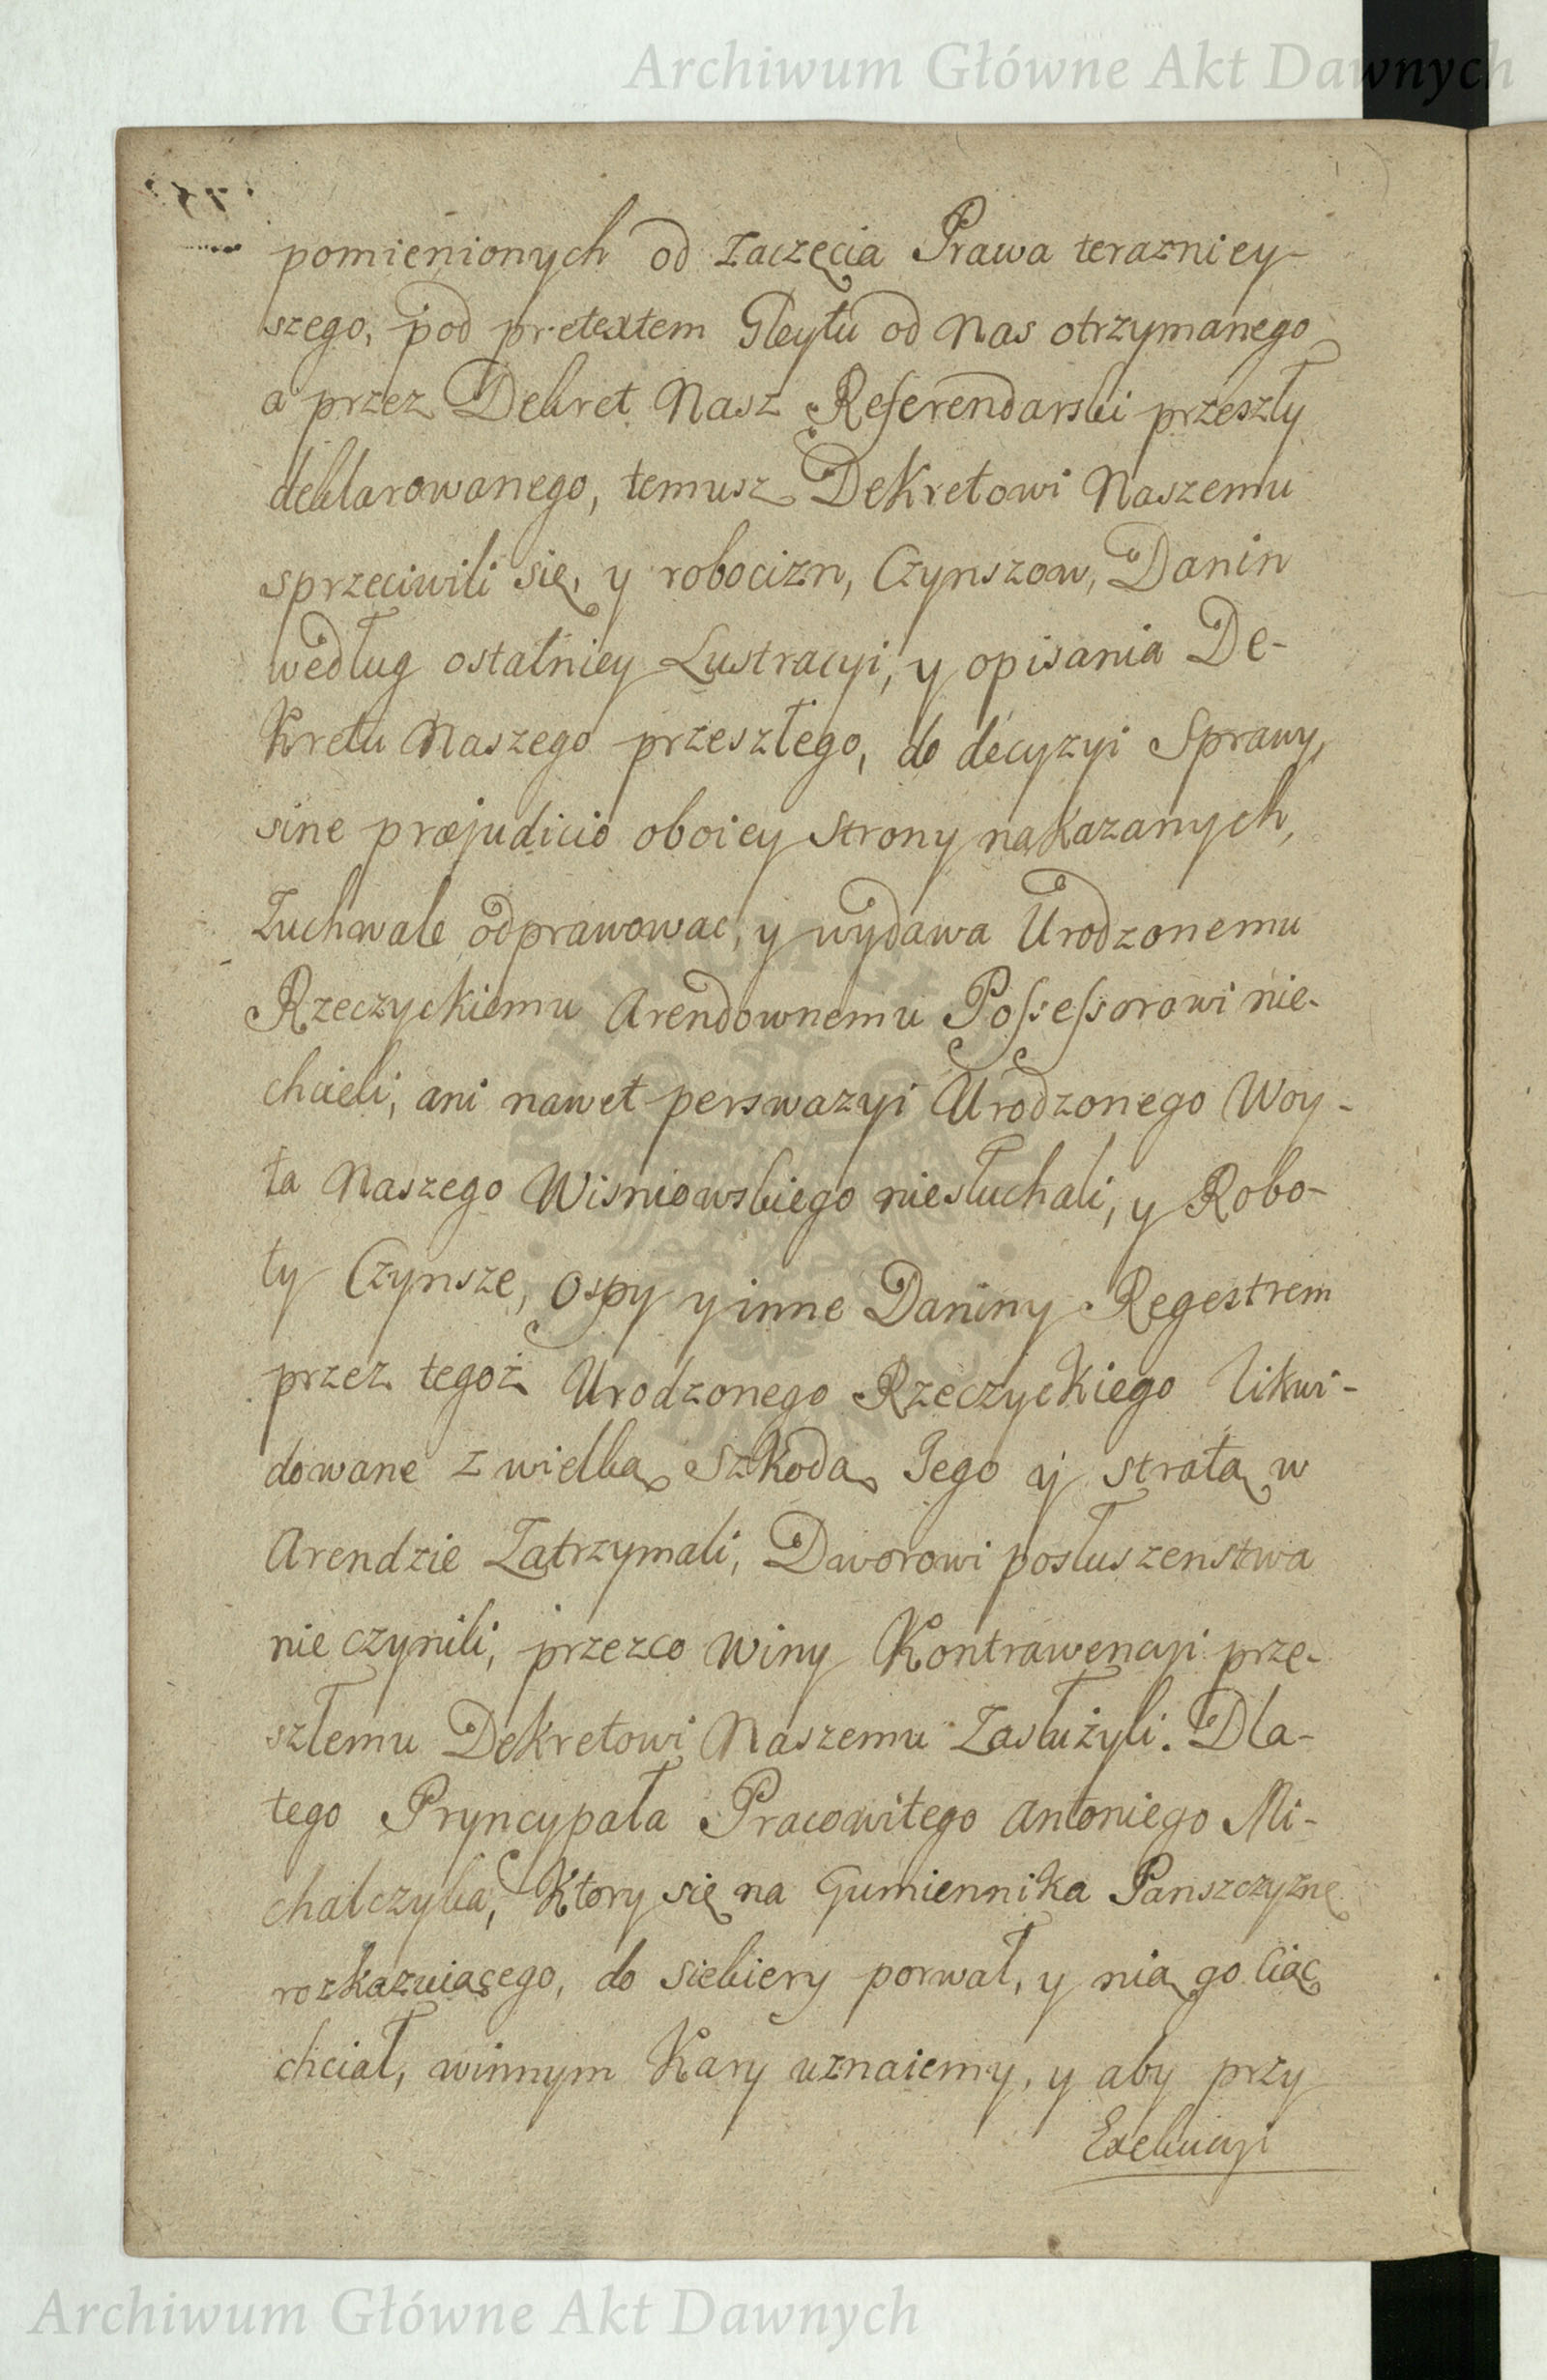 Archiwum Główne Akt Dawnych
pomienionych od Zaczęcia Prawa terazniey-
szego, pod pretextem Gleytu od Nas otrzymanego
a przez Dekret Nasz Referendarski przeszły
deklarowanego, temusz Dekretowi Naszemu
sprzeciwili się, y robocizn, Czynszow, Danin
według ostatniey Lustracyi, y opisania De-
kretu Naszego przeszłego, do decyzyi Sprawy,
sine præjudicio oboiey Strony nakazanych,
Zuchwale odprawowac, y wydawa Urodzonemu
Rzeczyckiemu Arendownemu Possessorowi nie-
chcieli, ani nawet perswazyi Urodzonego Woy-
ta Naszego Wisniowskiego niesłuchali, y Robo-
ty Czynsze, Ospy y inne Daniny Regestrem
przez tegoż Urodzonego Rzeczyckiego likwi-
dowane z wielką Szkodą Jego y stratą w
Arendzie Zatrzymali, Dworowi posłuszenstwa
nie czynili, przezco winy Kontrawencyi prze-
szłemu Dekretowi Naszemu Zasłużyli. Dla-
tego Pryncypała Pracowitego Antoniego Mi-
chalczyka, Ktory się na Gumiennika Panszczyznę
rozkazuiącego, do siekiery porwał, y nią go Ciąc
chciał, winnym Kary uznaiemy, y aby przy
Exekucyi
Archiwum Główne Akt Dawnych